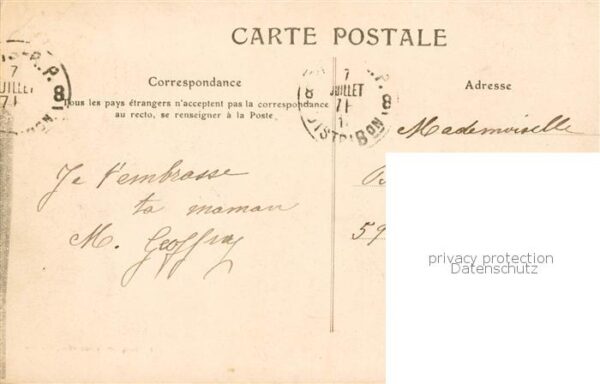 CARTE POSTALE
Correspondance
Tous les pays étrangers n'acceptent pas la correspondance
au recto, se renseigner à la Poste.
Adresse
7
JUILLET
71
8
DISTRIBON
7
UILLET
71
P. 8
Mademoiselle
59
Je t'embrasse
ta maman
M. Geoffray
privacy protection
Datenschutz